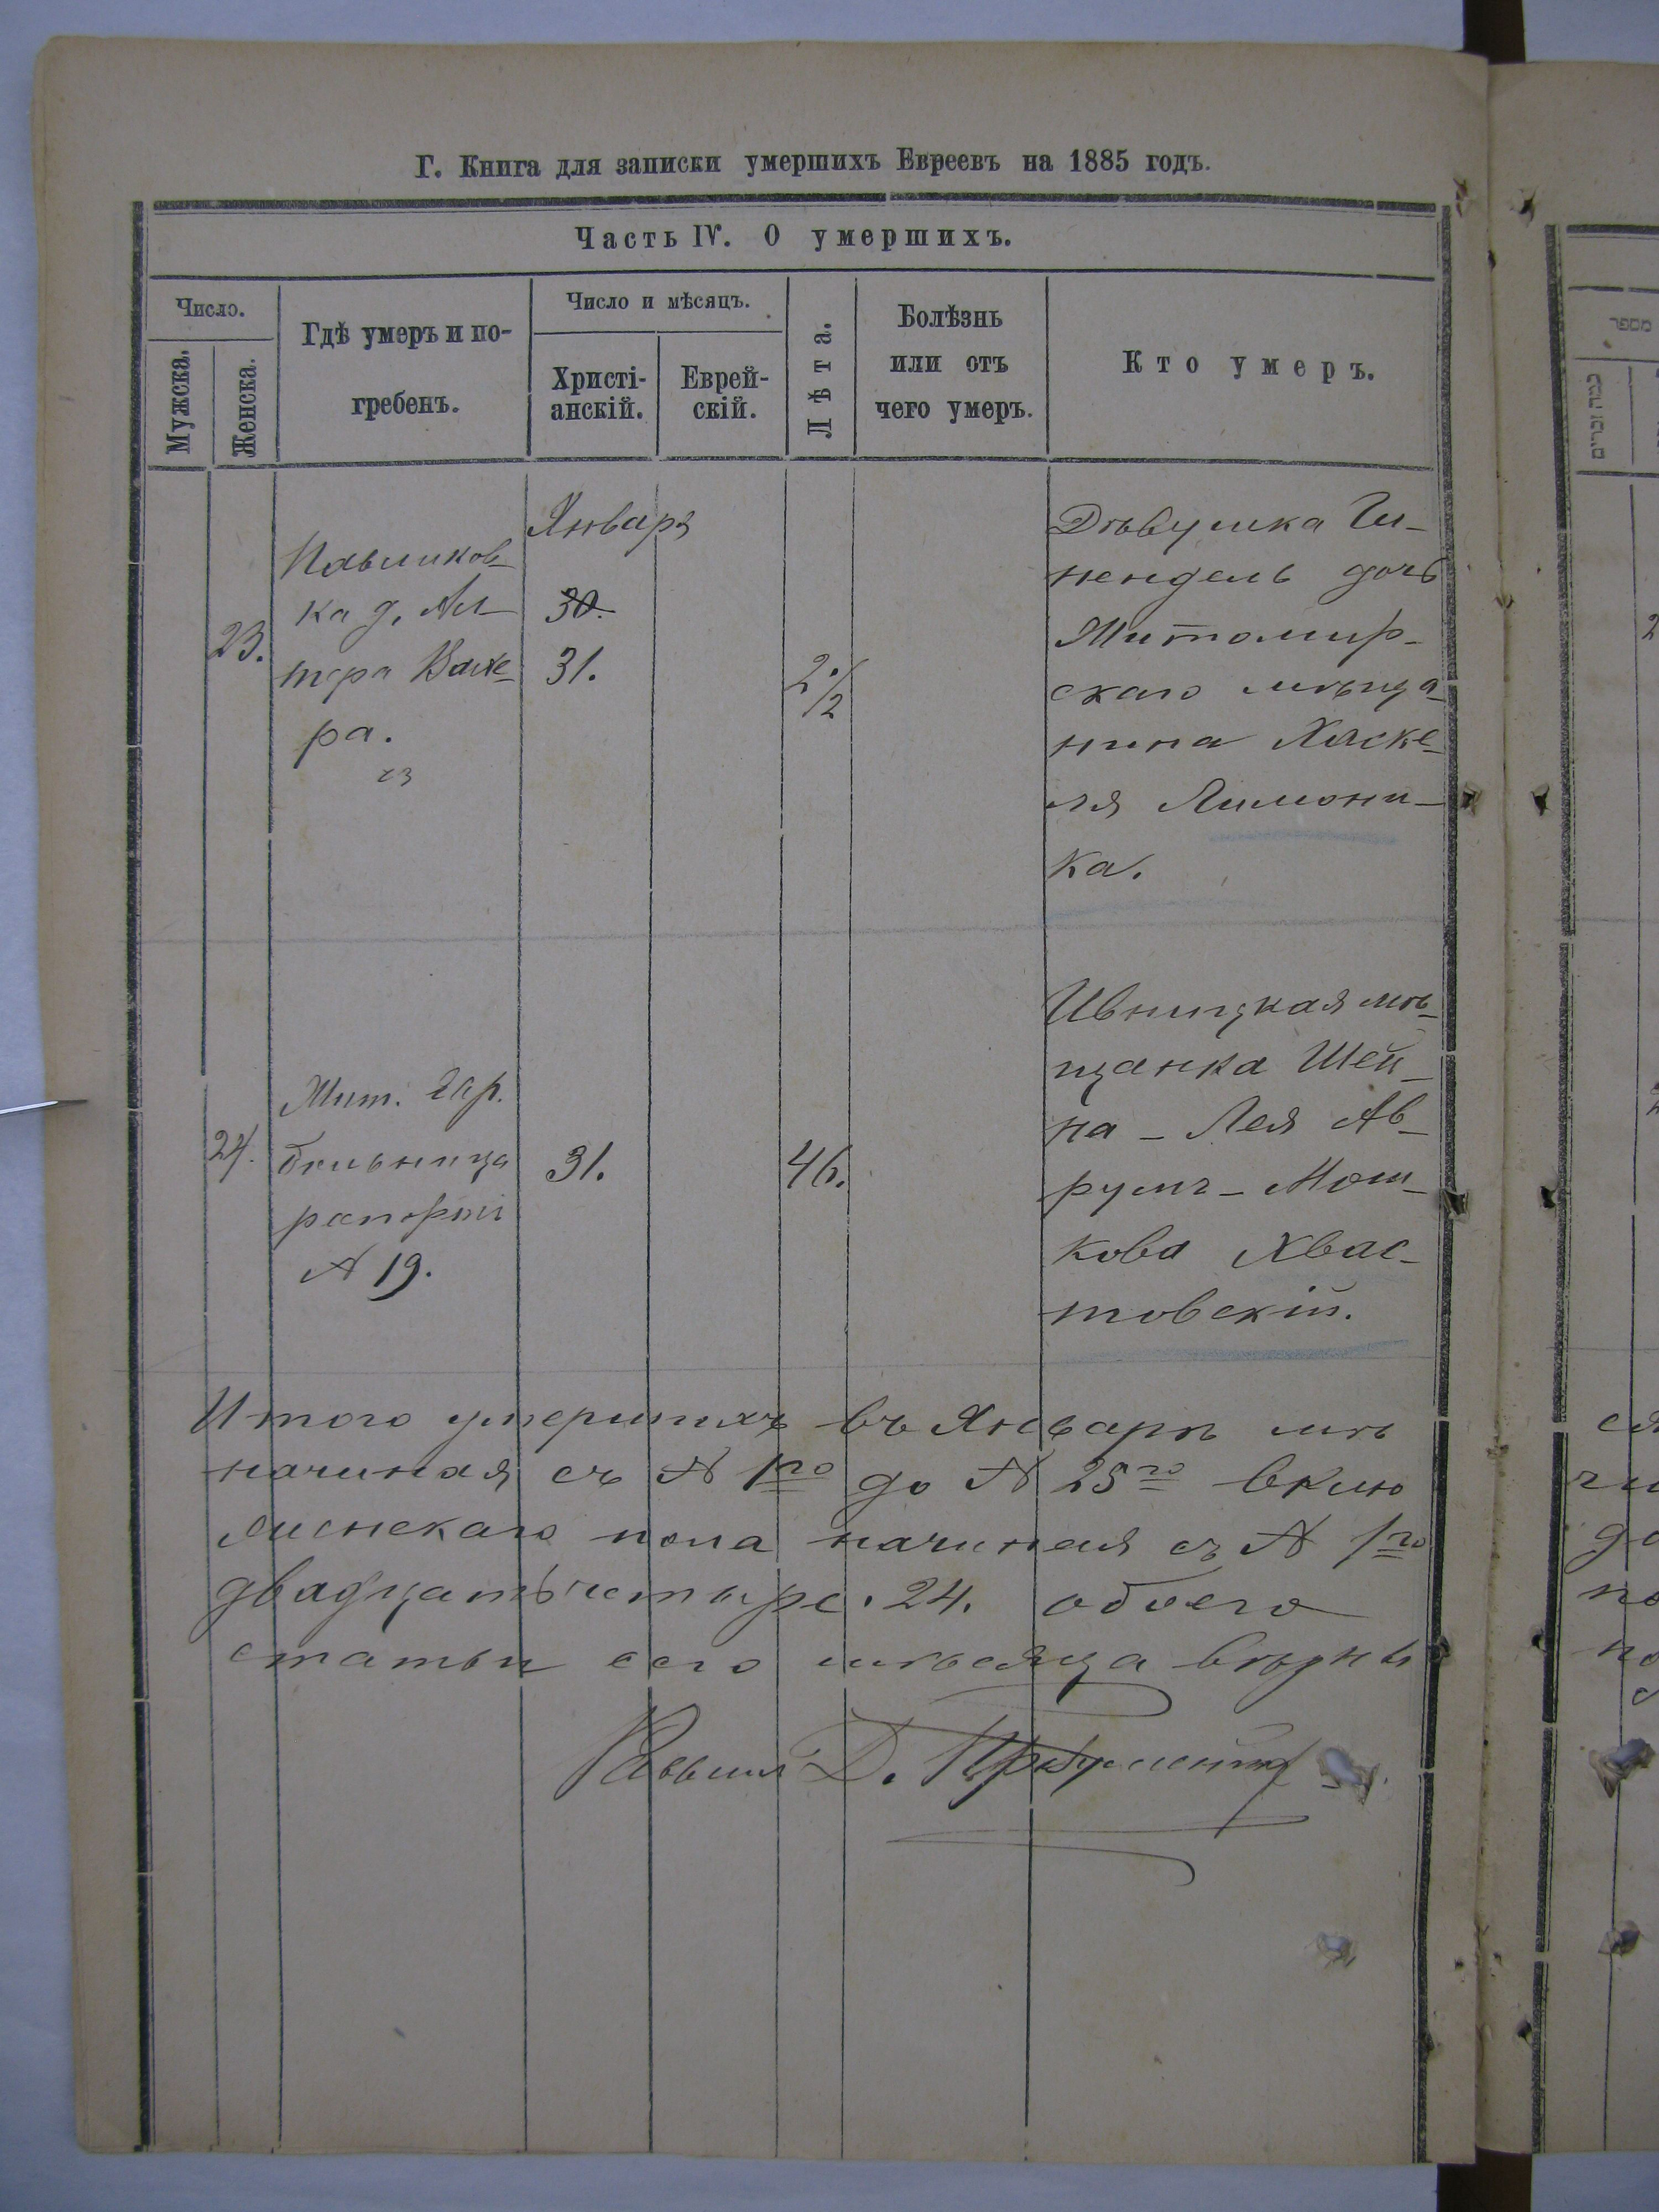 Г. Книга для записки умершихъ Евреевъ на 1885 годъ.
Часть IV. О умершихъ.
Число.
Мужска.
Женска.
Гдѣ умеръ и по-
гребенъ.
Число и мѣсяцъ.
Христі-
анскій.
Еврей-
скій.
Лѣта.
Болѣзнь
или отъ
чего умеръ.
Кто умеръ.
Январь
23.
Павликов-
ка д. Ал-
тера
ра.
30.
31.
2 1/2
Дѣвушка Ги-
нендель дочь
Житомир-
скаго мѣща-
нина Хаске-
ля Лимони-
ка.
24.
Жит. Евр.
больница
рапортъ
№ 19.
31.
46.
Ивницкая мѣ-
щанка Шей-
на - Лея Ав-
румъ - Мош-
кова Хвас-
товскій.
Итого умершихъ въ Январѣ мѣ
начиная съ № 1го до № 25го вклю
женскаго пола начиная съ № 1го
двадцать четыре. 24. обоего
статьи сего мѣсяца вѣрны
Раввин Д.
מספר